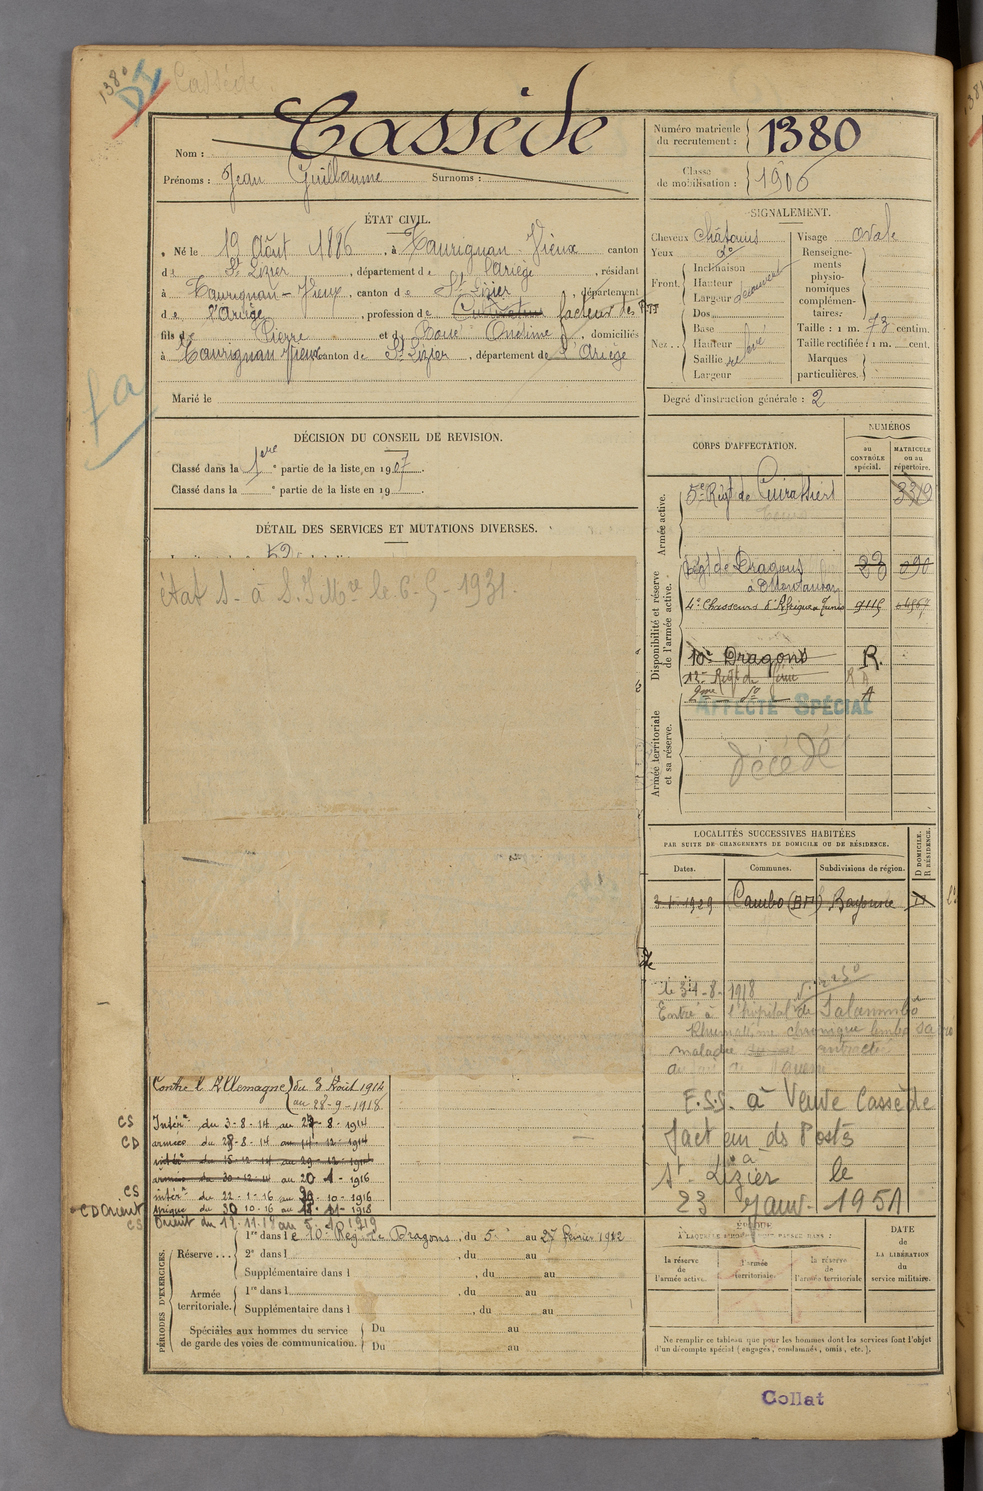 1380
Cassède
Nom : Cassède
Prénoms : Jean Guillaume Surnoms :
Numéro matricule du recrutement : 1380
Classe de mobilisation : 1906
ÉTAT CIVIL.
Né le 19 Août 1886, à Taurignan Vieux canton
de St Lizier, département de l'Ariège, résidant
à Taurignan-Vieux, canton de St Lizier, département
de l'Ariège, profession de Cultivateur facteur des PTT
fils de Pierre et de Doué Ondine, domiciliés
à Taurignan Vieux canton de St Lizier, département de l'Ariège
Marié le
SIGNALEMENT.
Cheveux châtains
Yeux do
Front. Inclinaison
Hauteur
Largeur
Nez. Dos
Base
Hauteur
Saillie relevé
Largeur
Visage ovale
Renseignements physionomiques complémentaires :
Taille : 1 m. 73 centim.
Taille rectifiée : 1 m. cent.
Marques particulières.
Degré d'instruction générale : 2
fa
DÉCISION DU CONSEIL DE REVISION.
Classé dans la 1ere partie de la liste en 1907.
Classé dans la e partie de la liste en 19
DÉTAIL DES SERVICES ET MUTATIONS DIVERSES.
état s. à S.J Mre le 6-5-1931.
CORPS D'AFFECTATION.
NUMÉROS
au CONTRÔLE spécial.
MATRICULE ou au répertoire.
Armée active.
5e Régt de Cuirassiers 3319
Disponibilité et réserve de l'armée active.
Régt de Dragons
à Montauban
4e Chasseurs d'Afrique à Tunis 9115
10e Dragons R.
Armée territoriale et sa réserve.
12e Régt du Génie
A
AFFECTÉ SPÉCIAL
décédé
LOCALITÉS SUCCESSIVES HABITÉES
PAR SUITE DE CHANGEMENTS DE DOMICILE OU DE RÉSIDENCE.
Dates. Communes. Subdivisions de région. D DOMICILE. R RÉSIDENCE.
3-1-1929 Cambo (BP) Bayonne
le 31-8-1918
Entré à l'hôpital de Salammbô
Rhumatisme chronique
maladie contractée
F.S.S. à Veuve Cassède
facteur ds Postes
à
St Lizier le
23 Janv. 1951
Contre l'Allemagne du 3 Août 1914
au 28-9-1918
CS Intérr du 3-8-14 au 27-8-1914
CD armées du 28-8-14 au 14-12-1914
intérr du 15-12-14 au 29-12-1914
armées du 30-12-14 au 20-1-1916
CS intérr du 22-1-16 au 29-10-1916
CD Orient Afrique du 30-10-16 au 18-11-1918
CS Orient du 19.11.18 au 5.10.1919
PÉRIODES D'EXERCICES.
Réserve... 1re dans le 10e Rég. de Dragons, du 5 au 27 février 1912
2e dans l , du au
Supplémentaire dans l , du au
Armée territoriale. 1re dans l , du au
Supplémentaire dans l , du au
Spéciales aux hommes du service de garde des voies de communication. Du au
Du au
ÉPOQUE
À LAQUELLE L'HOMME DOIT PASSER DANS :
la réserve de l'armée active.
l'armée territoriale.
la réserve de l'armée territoriale
DATE de LA LIBÉRATION du service militaire.
Ne remplir ce tableau que pour les hommes dont les services font l'objet
d'un décompte spécial (engagés, condamnés, omis, etc.).
Collat